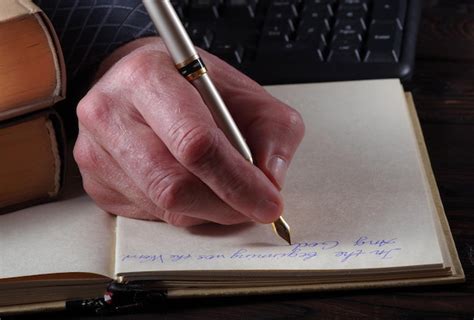 In the Beginning was the Word
God